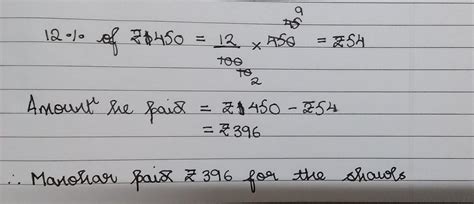 12% of ₹450 = 12/100 × 450 = ₹54
Amount he paid = ₹450 - ₹54
= ₹396
∴ Manohar paid ₹396 for the shawls